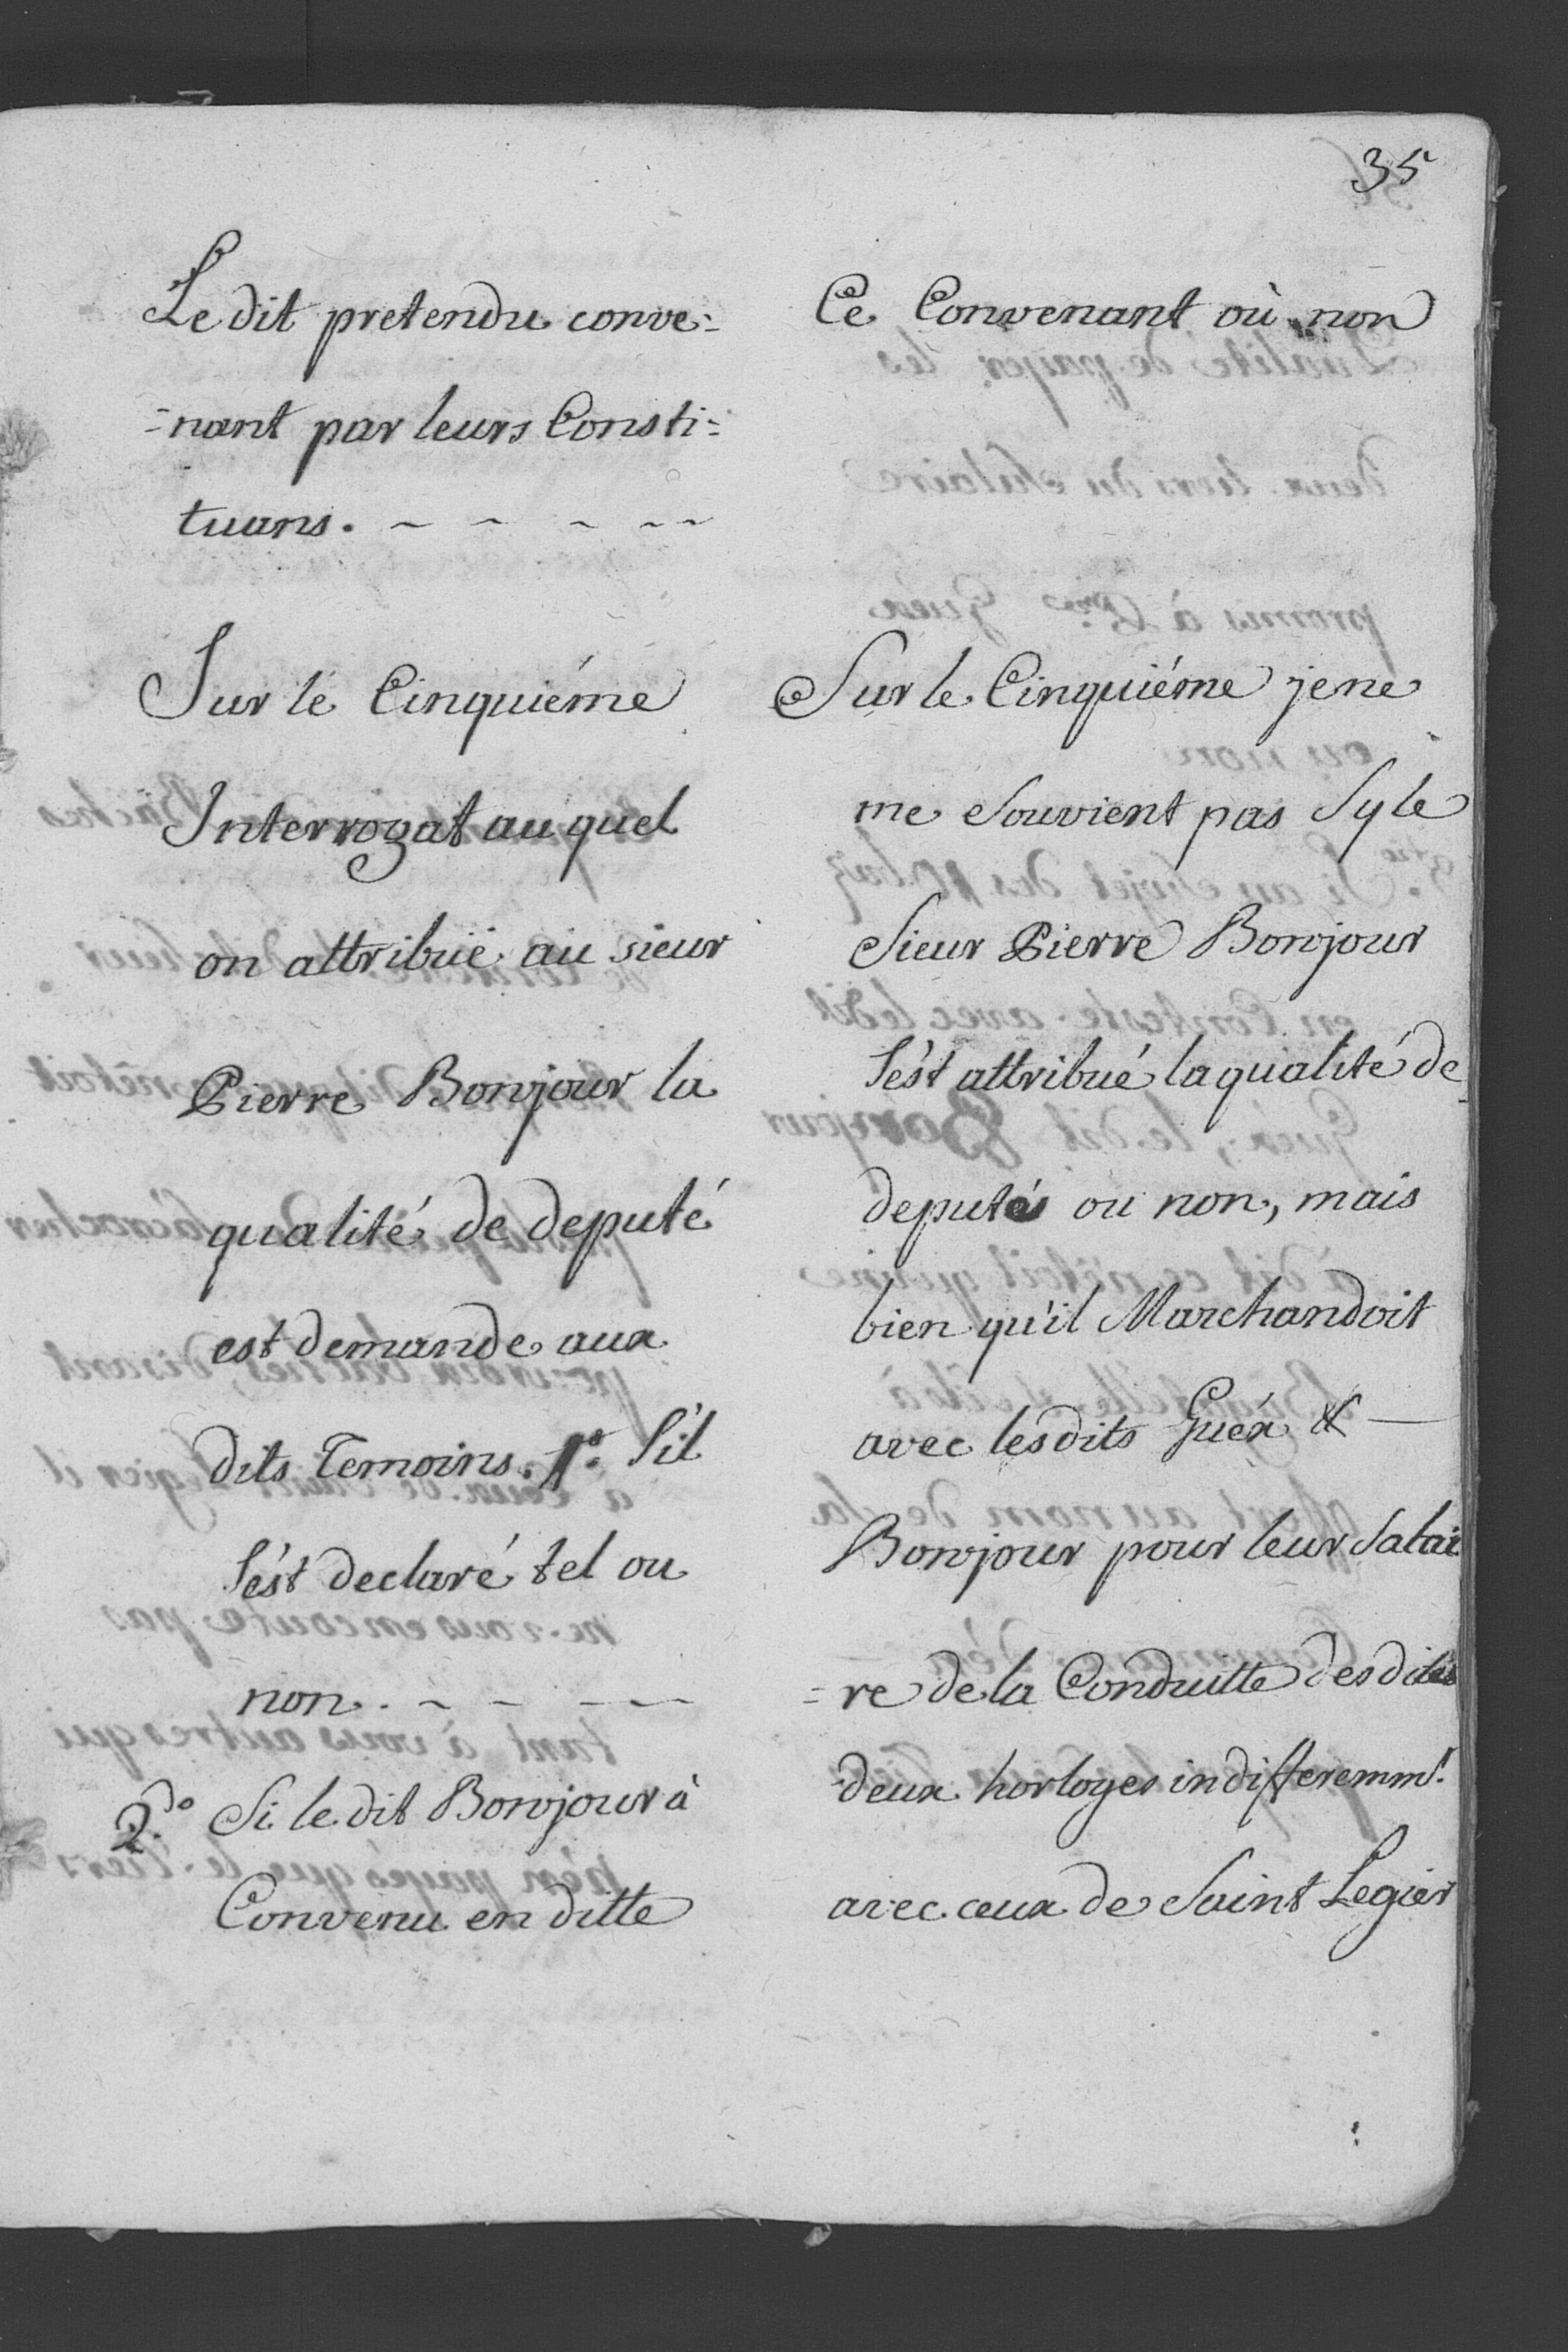 35
Le dit pretendu conve=
=nant par leurs Consti=
tuans.
Sur le Cinquiéme
Interrogat au quel
on attribüe au sieur
Pierre Bonjour la
qualité de deputé
est demande aux
dits Temoins. 1º. S'il
S'ést declaré tel ou
non.
2.do Si le dit Bonjour à
Convenu en ditte
Ce Convenant où non
Sur le Cinquiéme je ne
me Souvient pas Sy le
Sieur Pierre Bonjour
S'ést attribué la qualité de
deputés ou non, mais
bien qu'il Marchandoit
avec lesdits Guéx &
Bonjour pour leur Salai
=re de la Conduitte desdites
deux horloges indifferemmt.
avec ceux de Saint Legier